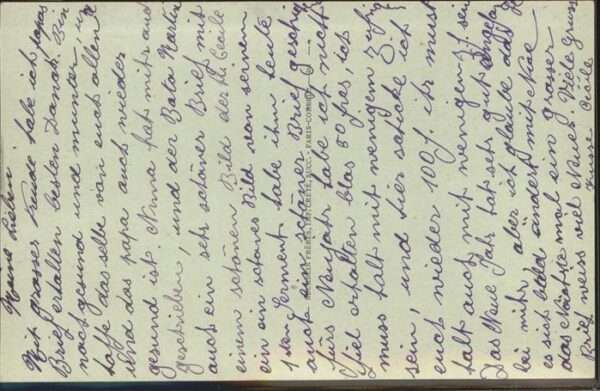 Meine Lieben
Mit grosser Freude habe ich papas
Brief erhalten besten Dank. Bin
noch gesund und munter, u
hoffe das selbe von euch allen
und das papa auch wieder
gesund ist. Nina hat mir auch
geschrieben, und der Bata Karten
auch ein sehr schöner Brief mit
einem schönen Bild der hl Cecile
ein ein schönes Bild von seinem
1 Serment habe ihm heute
auch ein schöner Brief geschig
fürs Neujahr habe ich nicht
fiel erhalten blos 50 frcs, ich
muss halt mit wenigem Zufri
sein, und hier schicke ich
euch wieder 100 f. ihr must
halt auch mit wenigen z. f. sei
Das Neue Jahr hat sehr gut angefa
bei mir, aber ich glaube das
es sich bald ändert mit Näe
das Nächste mal ein grosser
Brief weiss viel Neues Viele Grüss
Küsse Cécile
FRÈRES, PARIS